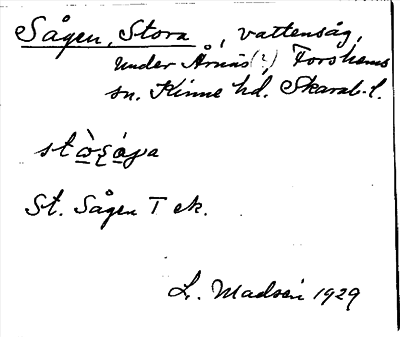 Sågen, Stora, vattensåg,
under Årnäs (?) Forshems
sn. Kinne hd. Skarab. l.
St. Sågen T ek.
L. Madsén 1929